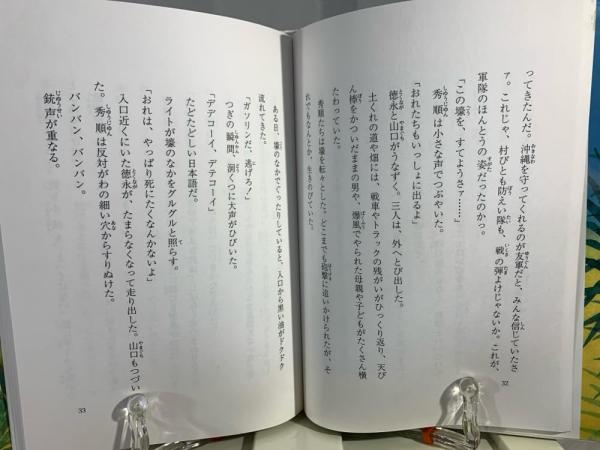 ってきたんだ。沖縄を守ってくれるのが友軍だと、みんな信じていたさ
ァ。これじゃ、村びとも防えい隊も、戦の弾よけじゃないか。これが、
軍隊のほんとうの姿だったのかっ。
「この壕を、すてようさァ……」
秀順は小さな声でつぶやいた。
「おれたちもいっしょに出るよ」
徳永と山口がうなずく。三人は、外へとび出した。
土くれの道や畑には、戦車やトラックの残がいがひっくり返り、天び
ん棒をかついだままの男や、爆風でやられた母親や子どもがたくさん横
たわっていた。
秀順たちは壕を転々とした。どこまでも砲撃に追いかけられたが、そ
れでもなんとか、生きのびていた。
32
ある日、壕のなかでぐったりしていると、入口から黒い油がドクドク
流れてきた。
「ガソリンだ、逃げろ！」
つぎの瞬間、洞くつに大声がひびいた。
「デデコーイ、デテコーイ」
たどたどしい日本語だ。
ライトが壕のなかをグルグルと照らす。
「おれは、やっぱり死にたくなんかないよ」
入口近くにいた徳永が、たまらなくなって走り出した。山口もつづい
た。秀順は反対がわの細い穴からすりぬけた。
バンバン、バンバン。
銃声が重なる。
33